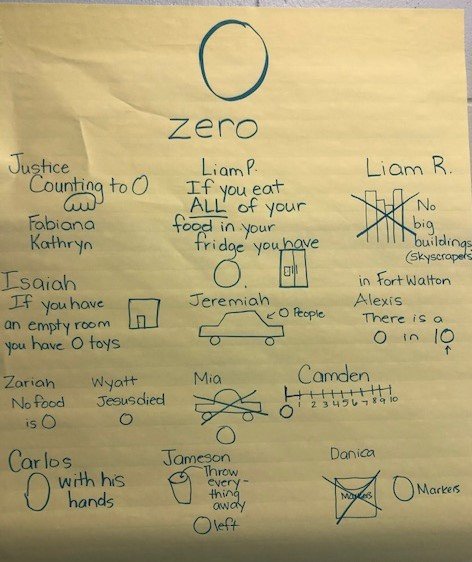 0
zero
Justice
Counting to 0
Fabiana
Kathryn
Liam P.
If you eat
ALL of your
food in your
fridge you have
0.
Liam R.
No
big
buildings
(skyscrapers
in Fort Walton
Isaiah
If you have
an empty room
you have 0 toys
Jeremiah
0 People
Alexis
There is a
0 in 10
Zariah
No food
is 0
Wyatt
Jesus died
0
Mia
0
Camden
0 1 2 3 4 5 6 7 8 9 10
Carlos
0 with his
hands
Jameson
Throw
every-
thing
away
0 left
Danica
Markers
0 Markers